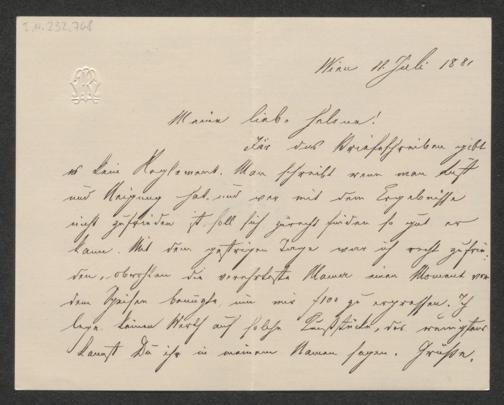 I.N. 232.708
Wien 11. Juli 1881
Meine liebe Helene!
Für das Briefschreiben gibt
es kein Reglement. Man schreibt wenn man Lust
und Neigung hat, und wer mit dem Ergebnisse
nicht zufrieden ist, soll sich zurecht finden so gut er
kann. Mit dem gestrigen Tage war ich recht zufrie-
den, obschon die verehrteste Mama einen Moment vor
dem Speisen benützte, um mir f100 zu erpressen. Ich
lege keinen Werth auf solche, das wenigstens
kannst Du ihr in meinem Namen sagen. Grüße,